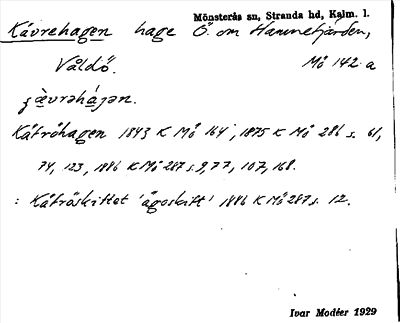 Mönsterås sn, Stranda hd, Kalm. l.
Kåvrehagen hage Ö. om Hamnefjärden,
Våldö. Mö 142 a
Kåfröhagen 1843 K Mö 164, 1875 K Mö 286 s. 61,
74, 123, 1886 K Mö 287 s. 9, 77, 107, 168.
: Kåfröskiftet 'ägoskift' 1886 K Mö 287 s. 12.
Ivar Modéer 1929